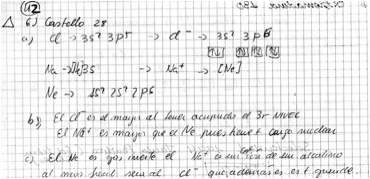 42
6) Castello 28
a) Cl → 3s² 3p⁵ → Cl⁻ → 3s² 3p⁶
Na → [Ne]3s → Na⁺ → [Ne]
Ne → 1s² 2s² 2p⁶
b) El Cl⁻ es el mayor al tener ocupado el 3er nivel
El Na⁺ es mayor que el Ne pues tiene + carga nuclear
c) El Ne es gas inerte el Na⁺ es un ion de un alcalino
al mas facil sera al Cl⁻ que ademas es el + grande